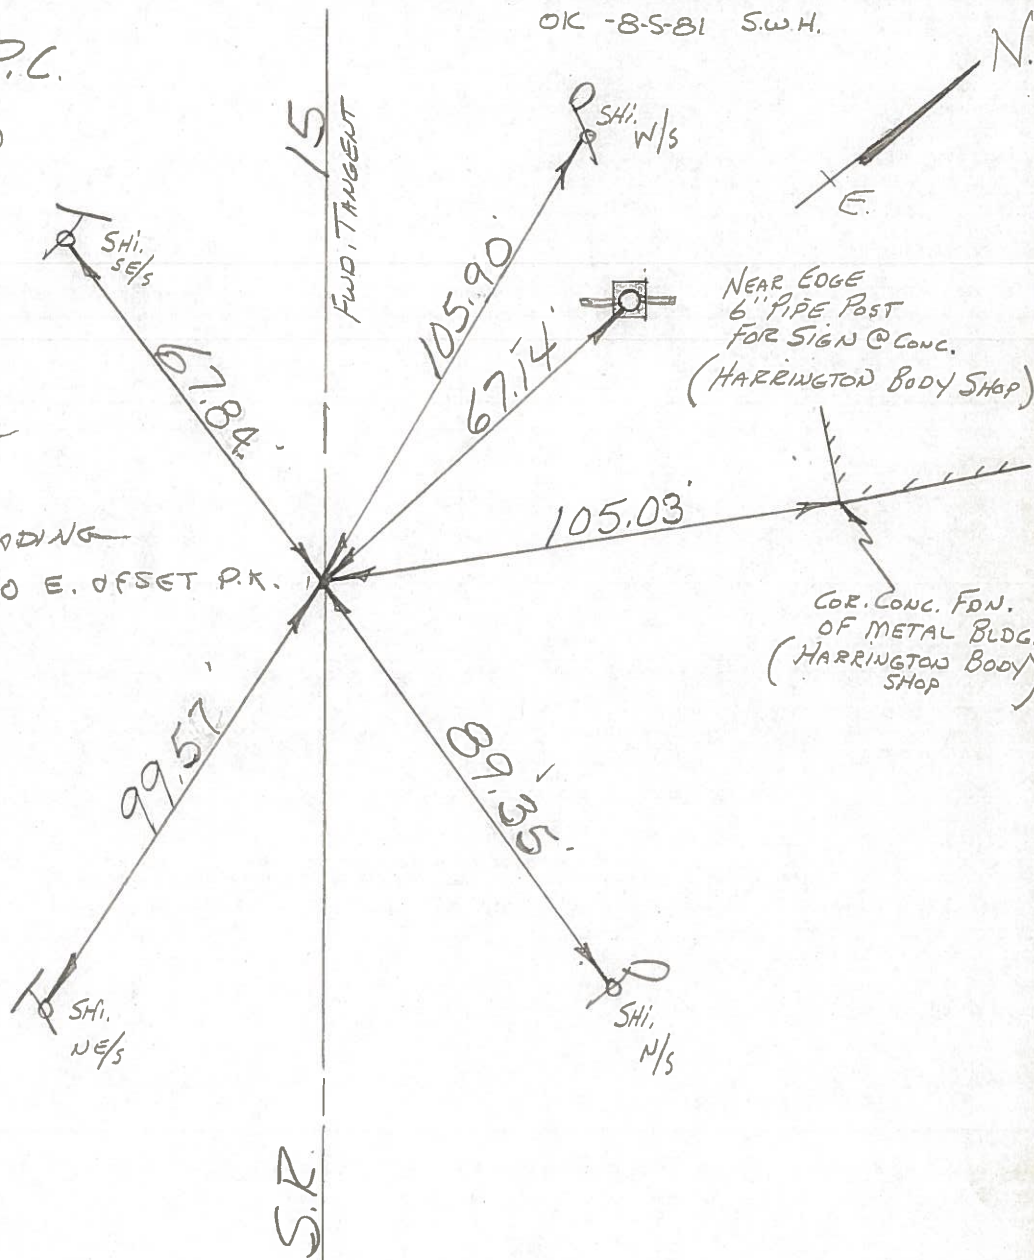 OK -8-5-81 S.W.H.
P.C.
N.
E.
15
FWD. TANGENT
SHI.
W/S
SHI.
SE/S
105.90'
67.14'
NEAR EDGE
6" PIPE POST
FOR SIGN @ CONC.
(HARRINGTON BODY SHOP)
105.03'
O E. OFSET P.K.
COR. CONC. FDN.
OF METAL BLDG.
(HARRINGTON BODY
SHOP)
99.57'
89.35'
SHI.
NE/S
SHI.
N/S
S.R.